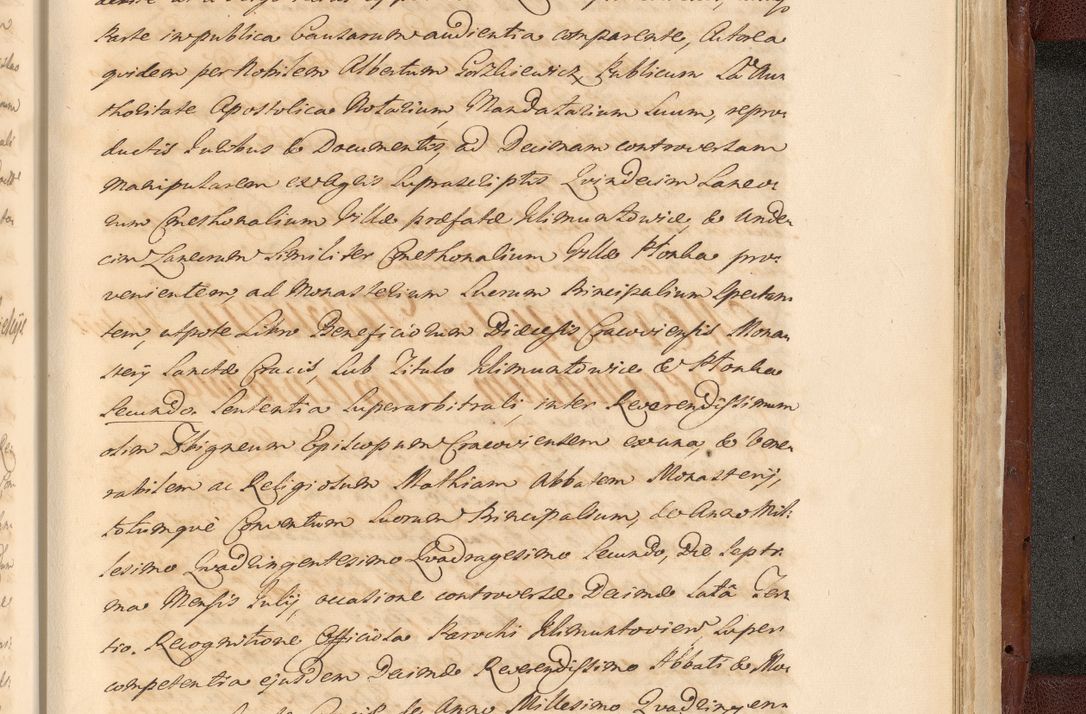 Parte in publica Causarum audientia comparente, Actorea
quidem per Nobilem Albertum Gorzkiewicz, Publicum Sa Au
thoritate Apostolica Notarium Mandatarium Suum, repro
ductis Juribus & Documentis, ad Decimam controversam
Manipularem ex Agris Suprascriptis Quindecim Laneo
rum Cmethonalium Villæ præfatæ Klimuntowice, & Unde
cim Laneorum Similiter Cmethonalium Villæ Ptonka pro
venientem, ad Monasterium Suorum Principalium Spectan
tem, utpote Libro Beneficiorum Diæcesis Cracoviensis Mona
sterij Sanctæ Crucis, Sub Titulo Klimuntowice & Ptonka
Secundo. Sententia Superarbitrali, inter Reverendissimum
olim Sbigneum Episcopum Cracoviensem ex una, & Vene
rabilem ac Religiosum Mathiam Abbatem Monasterij,
totumque Conventum Suorum Principalium, de Anno Mil:
lesimo Quadringentesimo Quadragesimo Secundo, Die Septi
ma Mensis Julij, occasione controversæ Decimæ Latâ Ter
tio. Recognitione Officiosa Parochi Klimuntovien, Super
competentia ejusdem Decimæ Reverendissimo Abbati & Mo
Anno Millesimo Quadringen